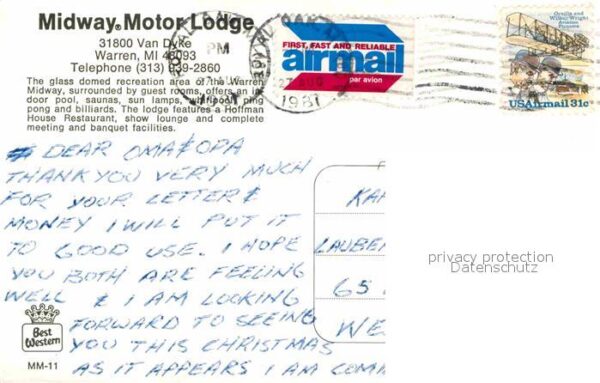 Midway Motor Lodge
31800 Van Dyke
Warren, MI 48093
Telephone (313) 939-2860
The glass domed recreation area of the Warren
Midway, surrounded by guest rooms, offers an in
door pool, saunas, sun lamps, whirlpool, ping
pong and billiards. The lodge features a Hoffman
House Restaurant, show lounge and complete
meeting and banquet facilities.
PM
1981
FIRST, FAST AND RELIABLE
airmail
par avion
Orville and
Wilbur Wright
Aviation
Pioneers
USAirmail 31c
DEAR OMA & OPA
THANK YOU VERY MUCH
FOR YOUR LETTER &
MONEY I WILL PUT IT
TO GOOD USE. I HOPE
YOU BOTH ARE FEELING
WELL & I AM LOOKING
FORWARD TO SEEING
YOU THIS CHRISTMAS
AS IT APPEARS I AM COMI
KA
LAUBE
65
WE
privacy protection
Datenschutz
Best
Western
MM-11